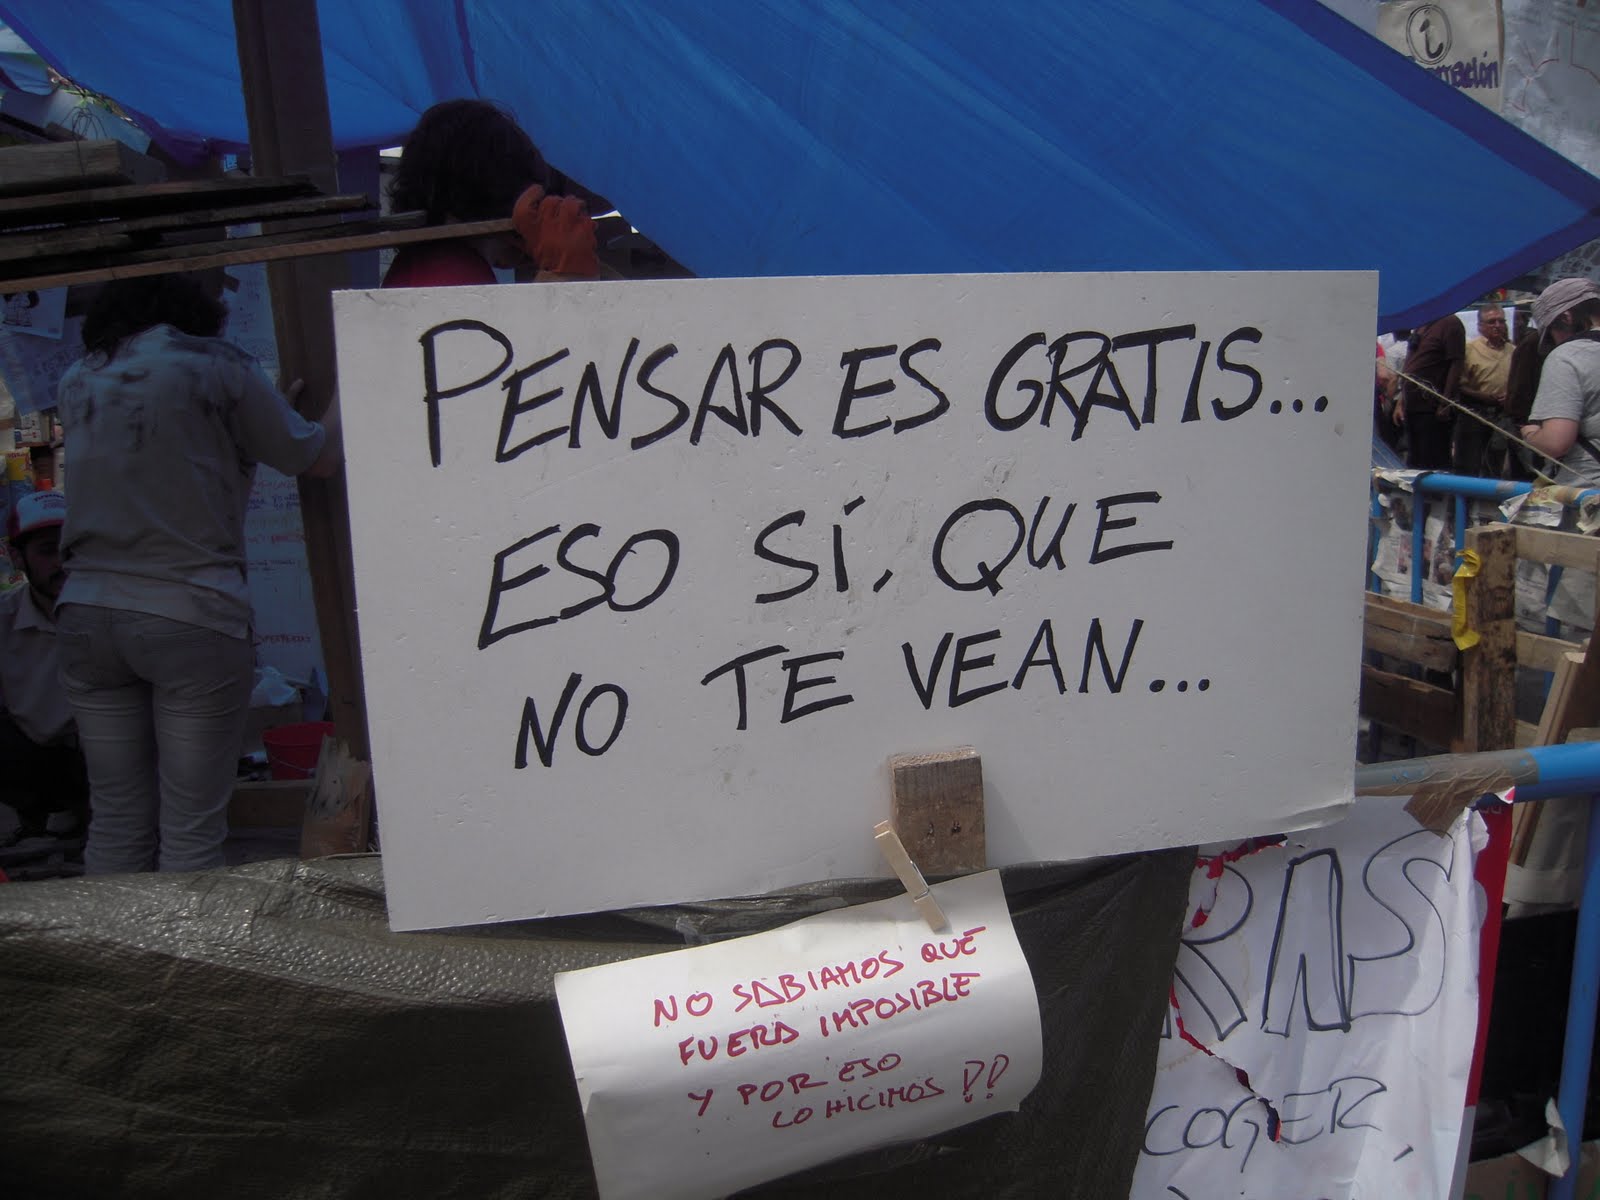 i
PENSAR ES GRATIS...
ESO SÍ, QUE
NO TE VEAN...
NO SABIAMOS QUE
FUERA IMPOSIBLE
Y POR ESO
LO HICIMOS !!
COGER